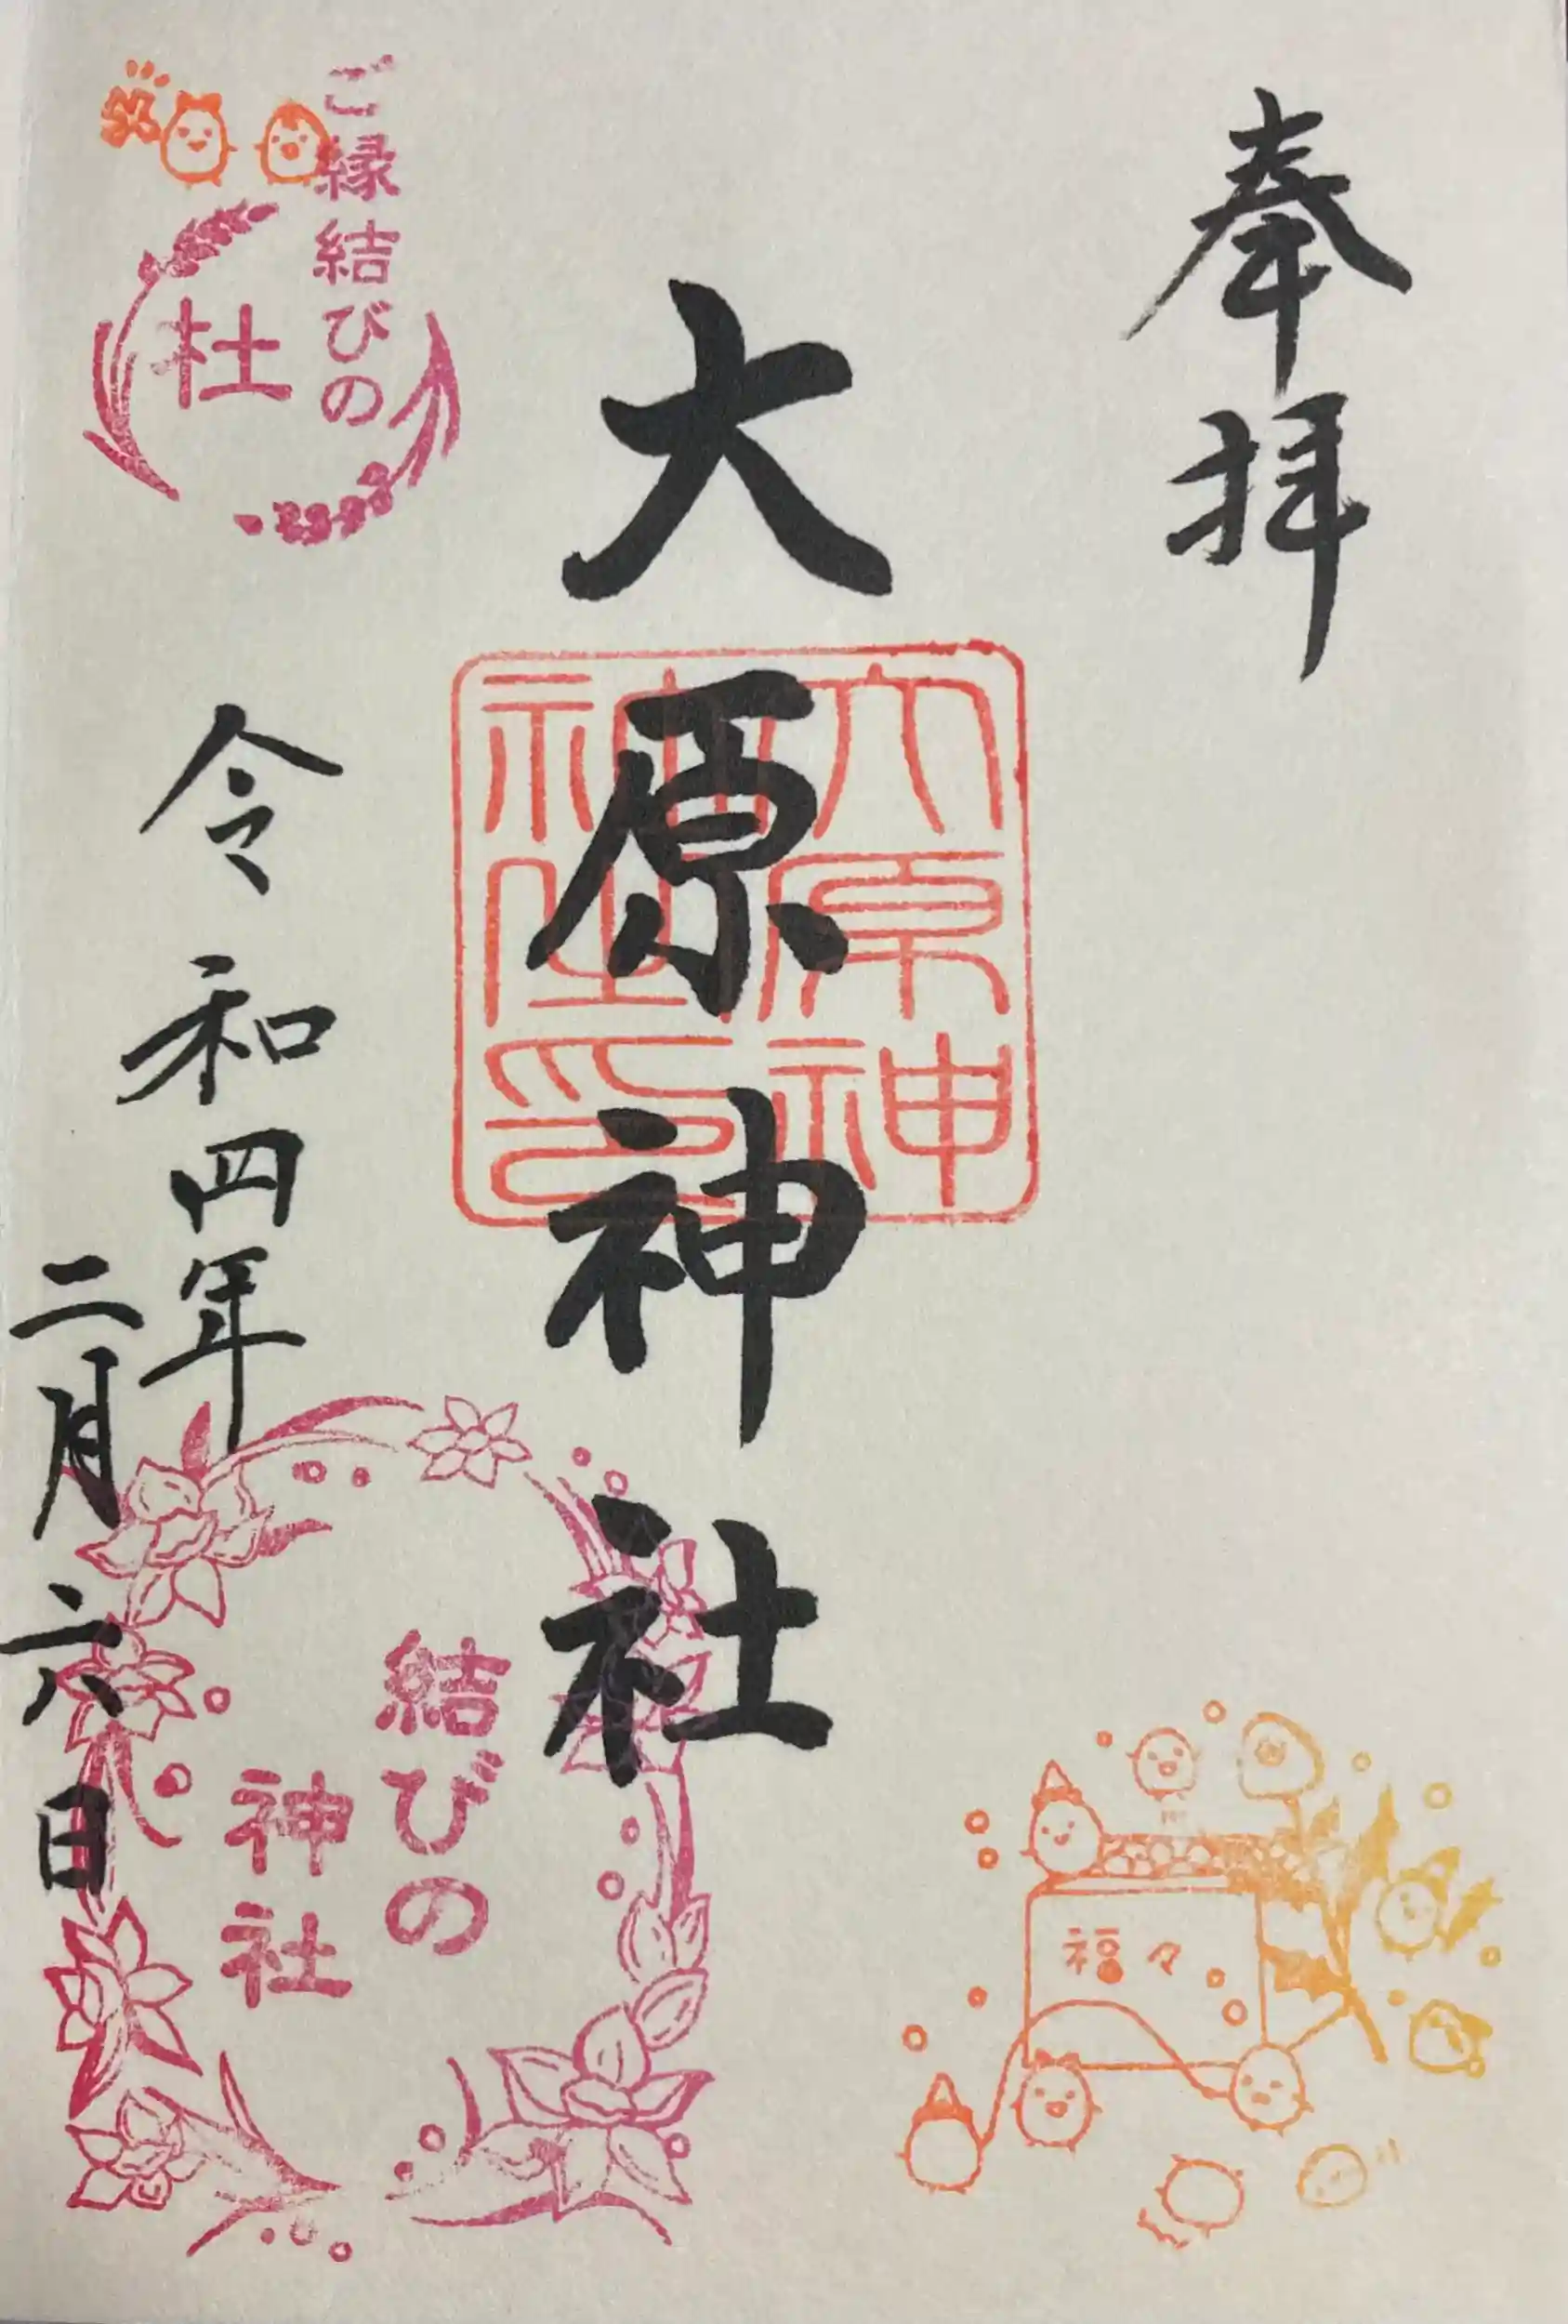 奉拝
大原神社
大原神
社印
ご縁結びの
杜
令和四年
二月六日
結びの
神社
福々